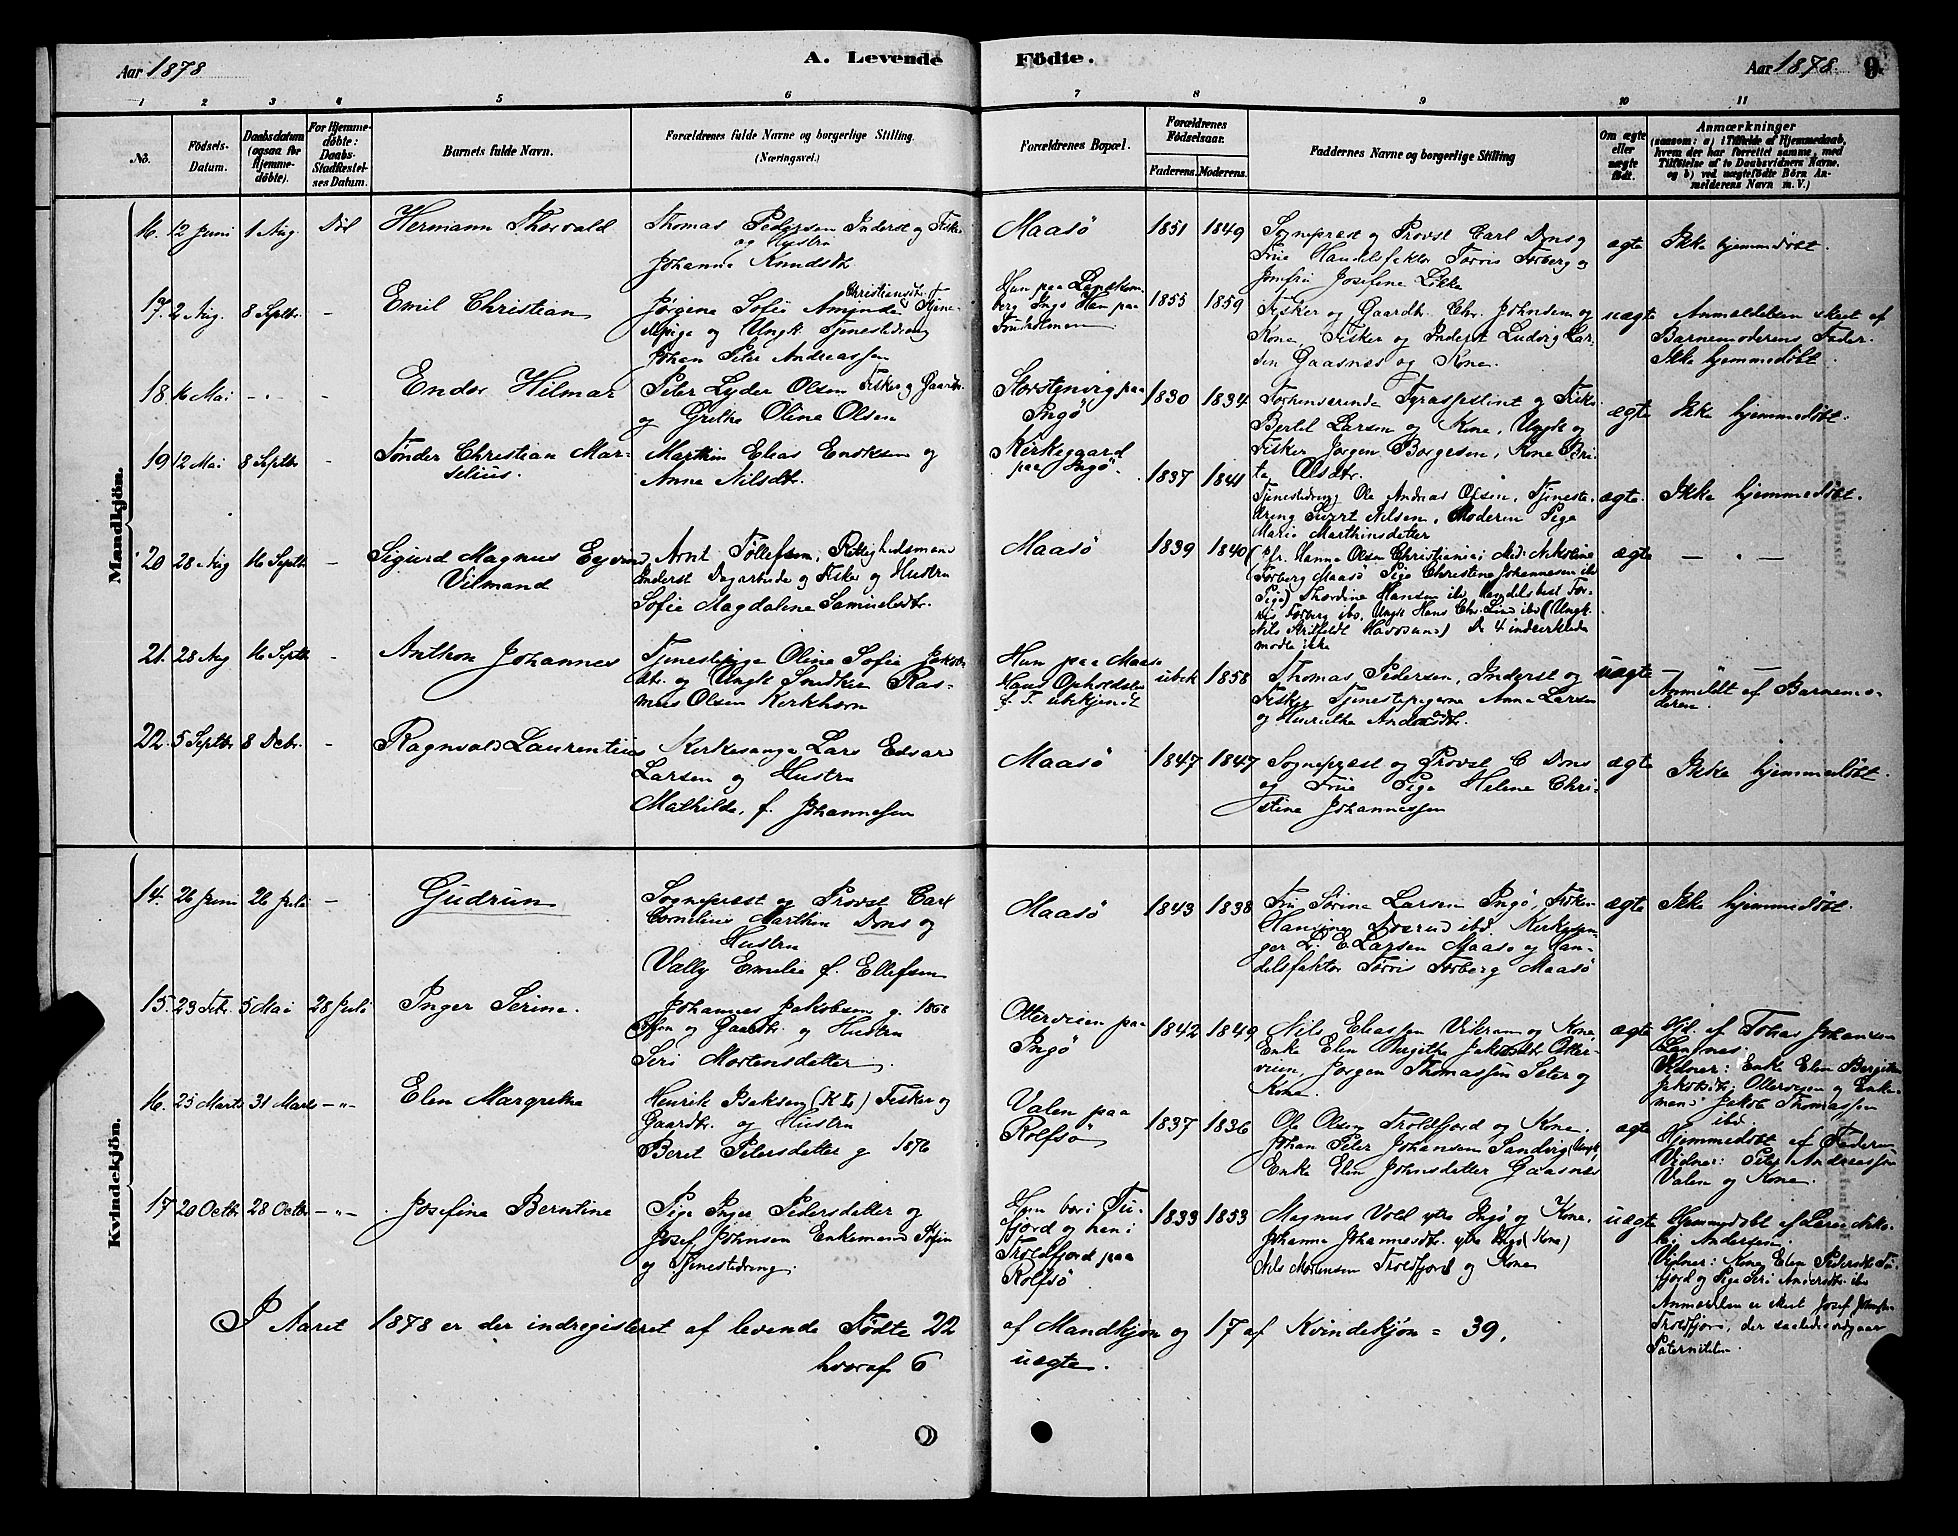 Aar 1878 A. Levende Födte. Aar 1878. 9
1 2 3 4 5 6 7 8 9 10 11
No.
Födsels-Datum.
Daabsdatum (ogsaa for Hjemme-döbte).
For Hjemme-döbte: Daabs-Stadfæstel-ses Datum.
Barnets fulde Navn.
Forældrenes fulde Navne og borgerlige Stilling.
(Næringsvei.)
Forældrenes Bopæl.
Forældrenes Födselsaar.
Faderens. Moderens.
Faddernes Navne og borgerlige Stilling
Om ægte eller uægte födt.
Anmærkninger
(saasom: a) i Tilfælde af Hjemmedaab,
hvem der har forrettet samme, med
Tilföielse af to Daabsvidners Navne,
og b) ved uægtefödte Börn An-
melderens Navn m. V.)
Mandkjön.
16. 12 Juni 1 Aug. Hermann Thorvald
Thomas Pedersen Inderst og Fisker
og Hustru
Johanna Knudsdtr.
Maasö 1851 1849
Sognepræst og Provst Carl Dons og
Frue Handelsfaktor Torris Forberg og
Jomfru Josefine Likke
ægte Ikke hjemmedöbt.
17. 2 Aug. 8 Septbr. - Emil Christian
Jörgine Sofie Amynda Christiansdtr. Tjene-
stepige og Ungk. Tjenestedreng
Johan Peter Andreassen
Hun paa
Ingö Han paa
1855 1859
Fisker og Gaardbr. Chr. Johnsen og
Kone, Fisker og Inderst Ludvig Lar-
sen Gaasnes og Kone.
uægte Anmeldelsen skeet af
Barnemoderens Fader.
Ikke hjemmedöbt.
18. 16 Mai - " - - Endor Hilmar
Peter Lyder Olsen Fisker og Gaardbr.
og Grethe Oline Olsen
Storstenvig paa
Ingö
1830 1834
Forhenværende Fyrassistent og Fisker
Bertel Larsen og Kone, Ungk. og
Fisker Jorgen Borgesen, Kone Beri-
ta Olsdtr.
ægte Ikke hjemmedöbt.
19 12 Mai 8 Septbr - Tönder Christian Mar-
selius.
Marthin Elias Enoksen og
Anna Nilsdtr.
Kirkegaard
paa Ingö.
1837 1841
Tjenestedreng Ole Andreas Olsen, Tjeneste-
dreng Sivert Nilsen, Moderen Pige
Marie Marthinsdatter
ægte. Ikke hjemmedöbt.
20 28 Aug 16 Septbr - Sigurd Magnus Eyvind
Vilmand
Arnt Tollefsen, Rettighedsmand
Inderst Dagarbeide og Fisker og Hustru
Sofie Magdalena Samuelsdtr.
Maasö 1839 1840
Hanna Olsen Christiania; Nikoline
Forberg Maasö Pige Christine Johannesen ibd
Pige) Thordine Hansen ibd Handelsbest. Tor-
ris Forberg ibd. Ungk. Hans Chr. Lind ibd (Ungk.
Nils Havösund) De 4 indcirklede
modte ikke
ægte - " -
21. 28 Aug 16 Septbr - Anthon Johannes
Tjenestepige Oline Sofie Jakobs-
dtr. og Ungk. Snedker Ras-
mus Olsen Kirkhorn
Hun paa Maasö
Hans Opholdsted
f. T. ubekjendt
ubek 1858
Thomas Pedersen, Inderst og
Fisker Tjenestepigerne Anna Larsen
og Henrikke Andersdtr.
uægte - " -
Anmeldt af Barnemo-
deren.
22. 5 Septbr 8 Decbr. - Ragnvald Laurentius
Kirkesanger Lars Edvard
Larsen og Hustru
Mathilde, f. Johannesen
Maasö 1847 1847
Sognepræst og Provst C Dons
og Frue Pige Helene Chri-
stine Johannessen
ægte Ikke hjemmedöbt.
Kvindekjön.
14. 26 Juni 26 Juli - Gudrun
Sognepræst og Provst Carl
Cornelius Marthin Dons og
Hustru
Vally Emelie f. Ellefsen
Maasö 1843 1838
Fru Sörine Larsen Ingö, Fröken
Hansine ibd. Kirkesan-
ger L. E. Larsen Maasö og Han-
delsfaktor Torris Forberg Maasö
ægte Ikke hjemmedöbt.
15. 23 Febr. 5 Mai 28 Juli Inger Serine.
Johannes Jakobsen g. 1868
og Gaardbr. og Hustru
Seri Mortensdatter.
Otterveien paa
Ingö
1842 1849
Nils Eliassen Vikran og Kone
Enke Elen Birgitha Jakobsdtr. Otter-
veien, Jorgen Thomassen Seter og
Kone.
ægte Hjd. af Tobias Johansen
Vidner: Enke Elen Bergitha
Jakobsdtr. Otterveien og Enke-
mand Jakob Thomassen
ibd.
16. 25 Marts 31 Marts - " - Elen Margrethe
Henrik Isaksen (K L) Fisker og
Gaardbr. og Hustru
Beret Petersdatter g. 1876
Valen paa
Rolfsö
1837 1836
Ole Olsen Troldfjord og Kone.
Johan Peter Johansen Sandvig (Ungk.)
Enke Elen Johnsdatter Gaasnes
ægte Hjemmedöbt af Faderen
Vidner: Peter Andreassen
Valen og Kone.
17 20 Octbr. 28 Octbr. - " - Josefina Berntine
Pige Inger Pedersdatter og
Josef Johnsen Enkemand
og Tjenestedreng.
Hun bor i Tu-
fjord og han i
Troldfjord paa
Rolfsö
1833 1853
Magnus Vold ytre Ingö og Kone.
Johanna Johannesdtr. ytre Ingö (Kone)
Nils Mortensen Troldfjord og Kone
uægte Hjemmedöbt af
Andersen.
Vidner: Kone Elen Pedersdtr. Tu-
fjord og Pige Seri Andersdtr. ibd
Anmeldelsen er skeet Josef Johnsen
Troldfjord, der saaledes vedgaar
Paterniteten.
I Aaret 1878 er der indregistreret af levende Födte 22 af Mandkjön og 17 af Kvindekjön = 39,
hvoraf 6 uægte.